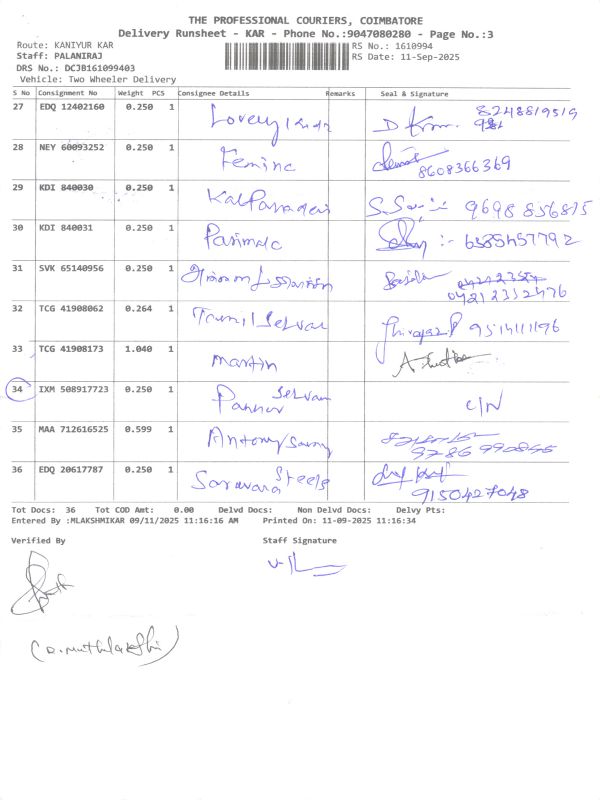 THE PROFESSIONAL COURIERS, COIMBATORE
Delivery Runsheet - KAR - Phone No.:9047080280 - Page No.:3
Route: KANIYUR KAR
RS No.: 1610994
Staff: PALANIRAJ
RS Date: 11-Sep-2025
DRS No.: DCJB161099403
Vehicle: Two Wheeler Delivery
S No Consignment No Weight PCS Consignee Details Remarks Seal & Signature
27 EDQ 12402160 0.250 1 Lovely 8248819519
28 NEY 60093252 0.250 1 Femina 8608366369
29 KDI 840030 0.250 1 9698 856815
30 KDI 840031 0.250 1 Parimala 6385457792
31 SVK 65140956 0.250 1 0421 2352476
32 TCG 41908062 0.264 1 Tamil Selvan 9514111196
33 TCG 41908173 1.040 1 Martin
34 IXM 508917723 0.250 1 Panner Selvam C/N
35 MAA 712616525 0.599 1 Antony Samy 9786 990855
36 EDQ 20617787 0.250 1 Saravana Steels 9150427048
Tot Docs: 36 Tot COD Amt: 0.00 Delvd Docs: Non Delvd Docs: Delvy Pts:
Entered By :MLAKSHMIKAR 09/11/2025 11:16:16 AM Printed On: 11-09-2025 11:16:34
Verified By Staff Signature
(D. Muthulakshmi)